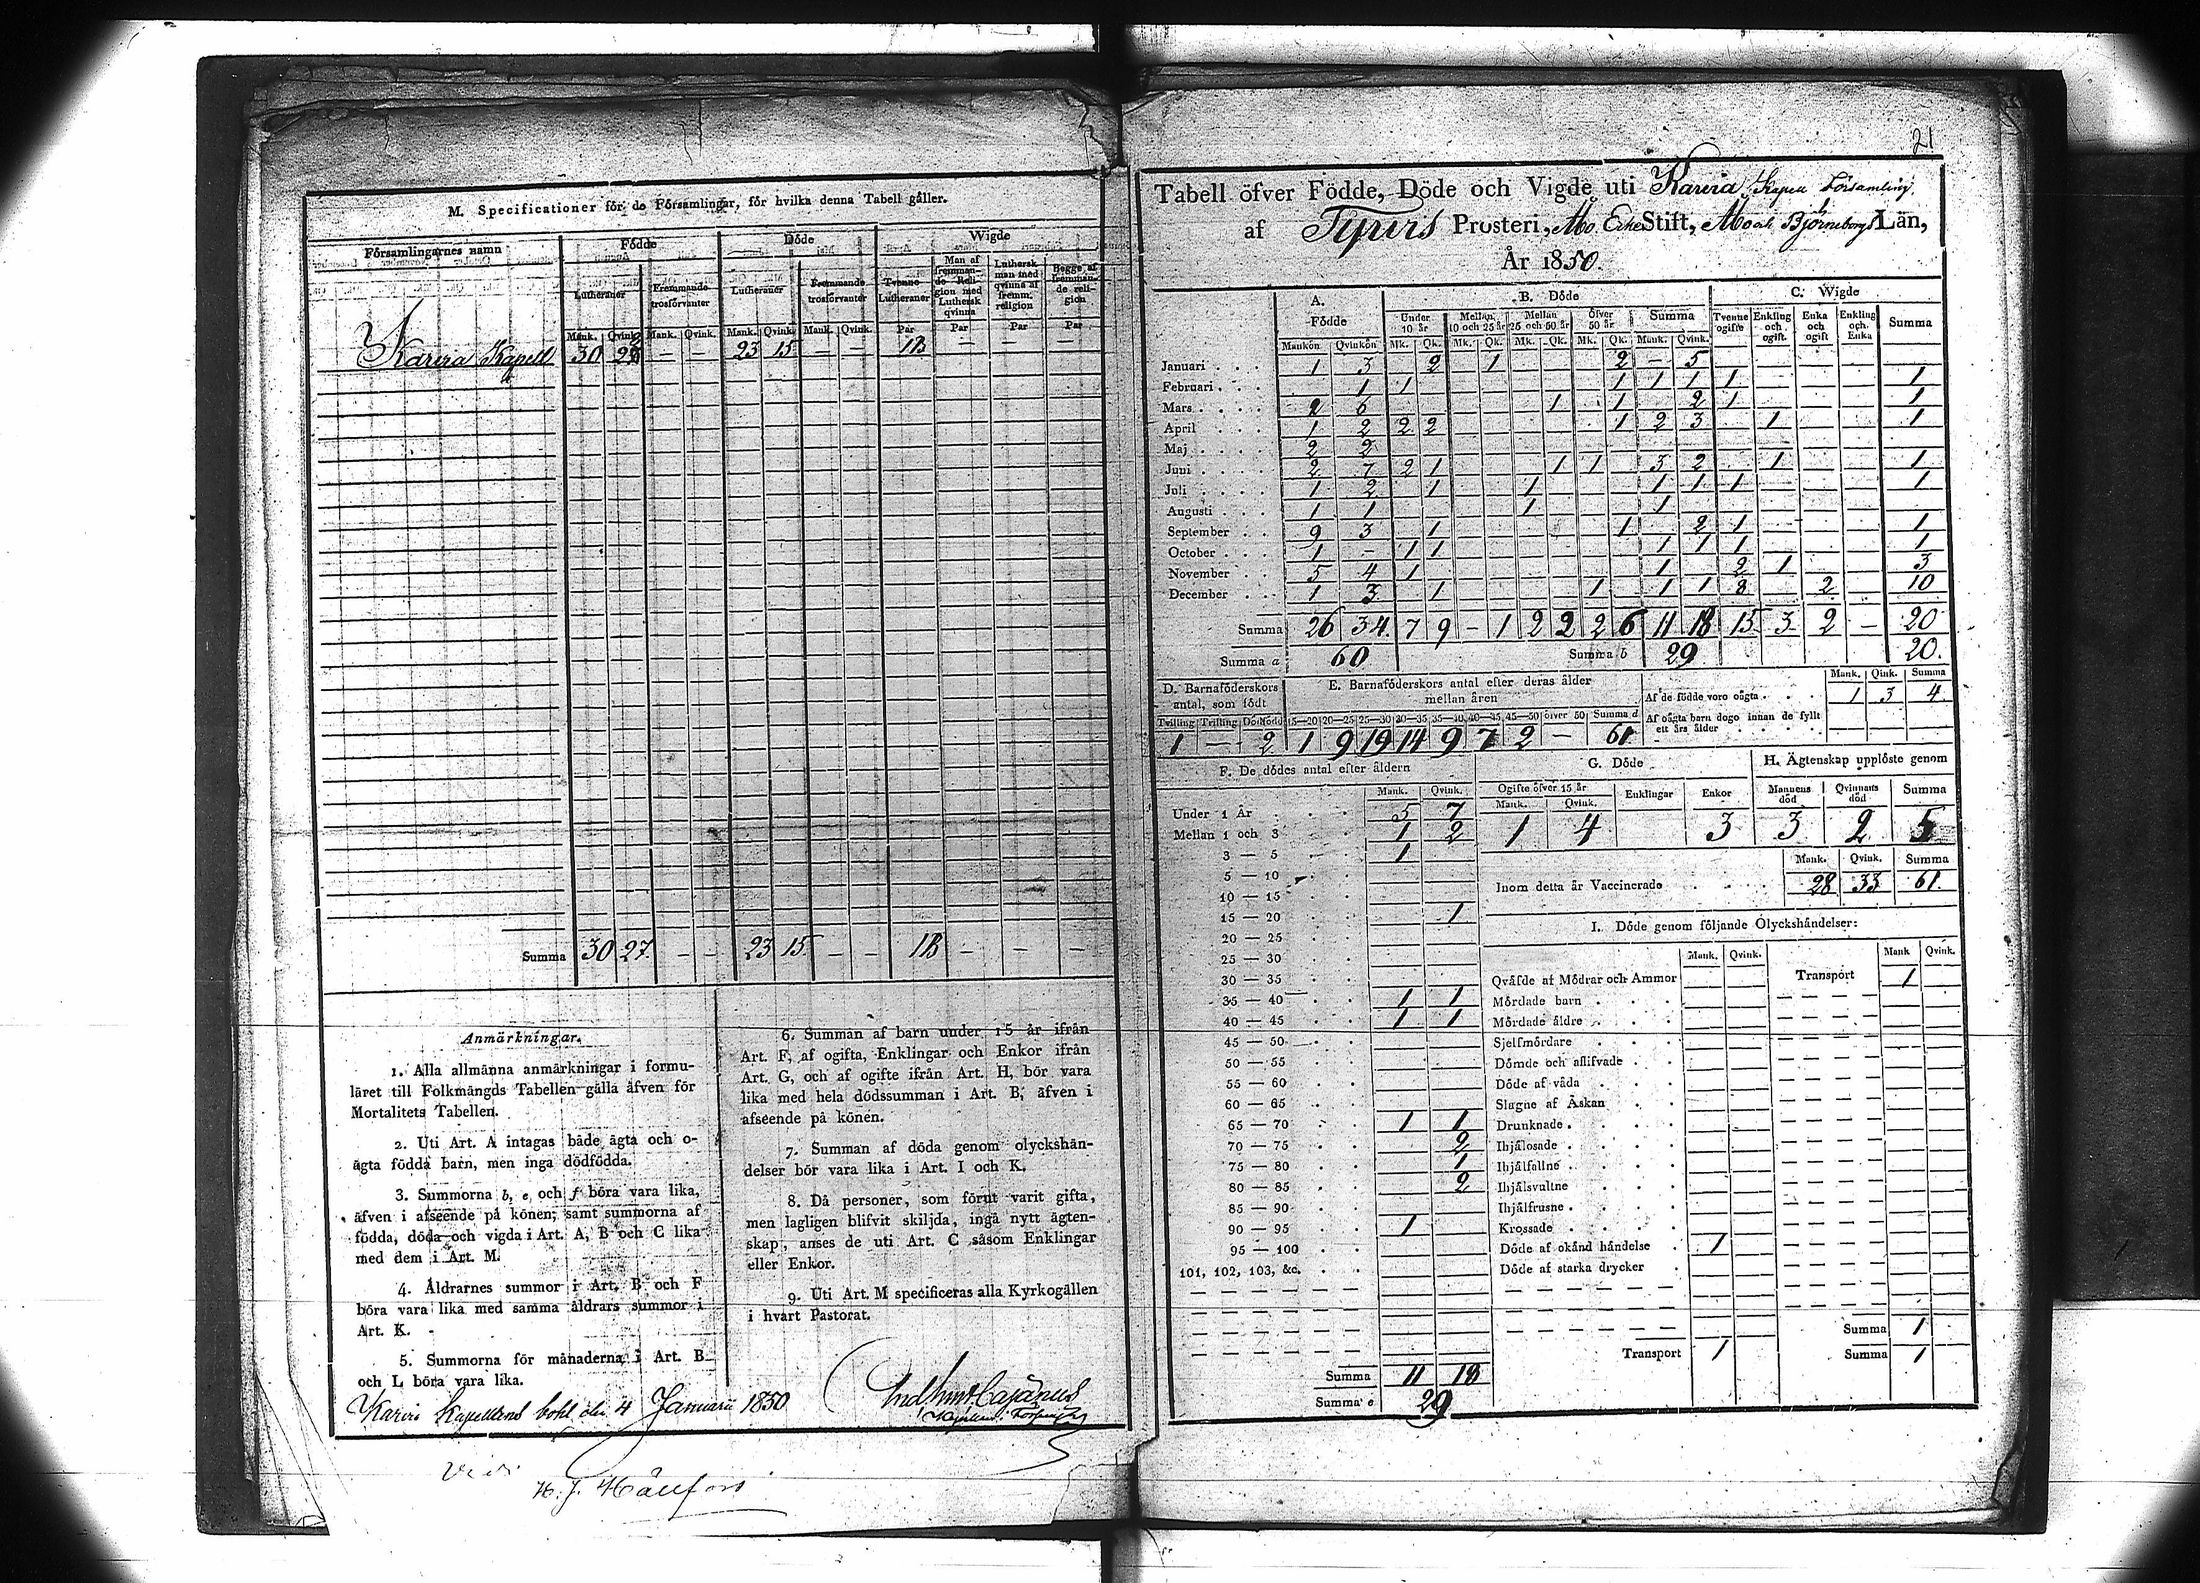 M. Specificationer för de Församlingar, för hvilka denna Tabell gäller.
Församlingarnes namn | Födde | Döde | Wigde
Lutheraner | Fremmande trosförvanter | Lutheraner | Fremmande trosförvanter | Tvenne Lutheraner | Man af fremmande Religion med Luthersk qvinna | Luthersk man med qvinna af fremm. religion | Begge af fremmande religion
Mank. Qvink. Mank. Qvink. Mank. Qvink. Mank. Qvink. Par Par Par Par
Karvia Kapell 30 – – 23 15 – – 18 – – –
Summa 30 27. – – 23 15. – – 18 – – –
Anmärkningar.
1. Alla allmänna anmärkningar i formu-
läret till Folkmängds Tabellen gälla äfven för
Mortalitets Tabellen.
2. Uti Art. A intagas både ägta och o-
ägta födda barn, men inga dödfödda.
3. Summorna b, e, och f böra vara lika,
äfven i afseende på könen; samt summorna af
födda, döda och vigda i Art. A, B och C lika
med dem i Art. M.
4. Åldrarnes summor i Art. B och F
böra vara lika med samma åldrars summor i
Art. K.
5. Summorna för månaderna i Art. B
och L böra vara lika.
6. Summan af barn under 15 år ifrån
Art. F, af ogifta, Enklingar och Enkor ifrån
Art. G, och af ogifte ifrån Art. H, bör vara
lika med hela dödssumman i Art. B, äfven i
afseende på könen.
7. Summan af döda genom olyckshän-
delser bör vara lika i Art. I och K.
8. Då personer, som förut varit gifta,
men lagligen blifvit skiljda, ingå nytt ägten-
skap, anses de uti Art. C såsom Enklingar
eller Enkor.
9. Uti Art. M specificeras alla Kyrkogällen
i hvart Pastorat.
Karvia Kapellens bohl den 4 Januarii 1850
Cajanus
Vidi
H. J.
21
Tabell öfver Födde, Döde och Vigde uti Karvia Kapell Församling,
af Tyrvis Prosteri, Åbo Erke Stift, Åbo och Björneborgs Län,
År 1850.
A. Födde | B. Döde | C. Wigde
Under 10 år | Mellan 10 och 25 år | Mellan 25 och 50 år | Öfver 50 år | Summa | Tvenne ogifte | Enkling och ogift. | Enka och ogift | Enkling och Enka | Summa
Mankön Qvinkön Mk. Qk. Mk. Qk. Mk. Qk. Mk. Qk. Mank. Qvink.
Januari 1 3 2 1 2 – 5
Februari 1 1 1 1 1 1 1
Mars 2 6 1 1 2 1 1
April 1 2 2 2 1 2 3 1 1
Maj 2 2
Juni 2 7 2 1 1 1 3 2 1 1
Juli 1 2 1 1 1 1 1 1
Augusti 1 1 1 1
September 9 3 1 1 2 1 1
October 1 – 1 1 1 1 1 1
November 5 4 1 1 2 1 3
December 1 3 1 1 1 1 8 2 10
Summa 26 34. 7 9 – 1 2 2 2 6 11 18 15 3 2 – 20
Summa a 60 Summa b 29 20.
D. Barnaföderskors antal, som födt
E. Barnaföderskors antal efter deras ålder mellan åren
Tvilling Trilling Dödfödd 15—20 20—25 25—30 30—35 35—40 40—45 45—50 öfver 50 Summa d
1 – 2 1 9 19 14 9 7 2 – 61
Mank. Qink. Summa
Af de födde voro oägta 1 3 4.
Af oägta barn dogo innan de fyllt
ett års ålder
F. De dödes antal efter åldern
Mank. Qvink.
Under 1 År 5 7
Mellan 1 och 3 1 2
3 — 5 1
5 — 10
10 — 15
15 — 20 1
20 — 25
25 — 30
30 — 35
35 — 40 1 1
40 — 45 1 1
45 — 50
50 — 55
55 — 60
60 — 65
65 — 70 1 1
70 — 75 2
75 — 80 1
80 — 85 2
85 — 90
90 — 95 1
95 — 100
101, 102, 103, &c.
Summa 11 18
Summa e 29
G. Döde
Ogifte öfver 15 år Enklingar Enkor
Mank. Qvink.
1 4 3
H. Ägtenskap upplöste genom
Mannens död Qvinnans död Summa
3 2 5
Mank. Qvink. Summa
Inom detta år Vaccinerade 28 33 61.
I. Döde genom följande Olyckshändelser:
Mank. Qvink. Mank Qvink.
Qväfde af Mödrar och Ammor Transport 1
Mördade barn
Mördade äldre
Sjelfmördare
Dömde och aflifvade
Döde af våda
Slagne af Åskan
Drunknade
Ihjälosade
Ihjälfallne
Ihjälsvultne
Ihjälfrusne
Krossade
Döde af okänd händelse 1
Döde af starka drycker
Summa 1
Transport 1 Summa 1